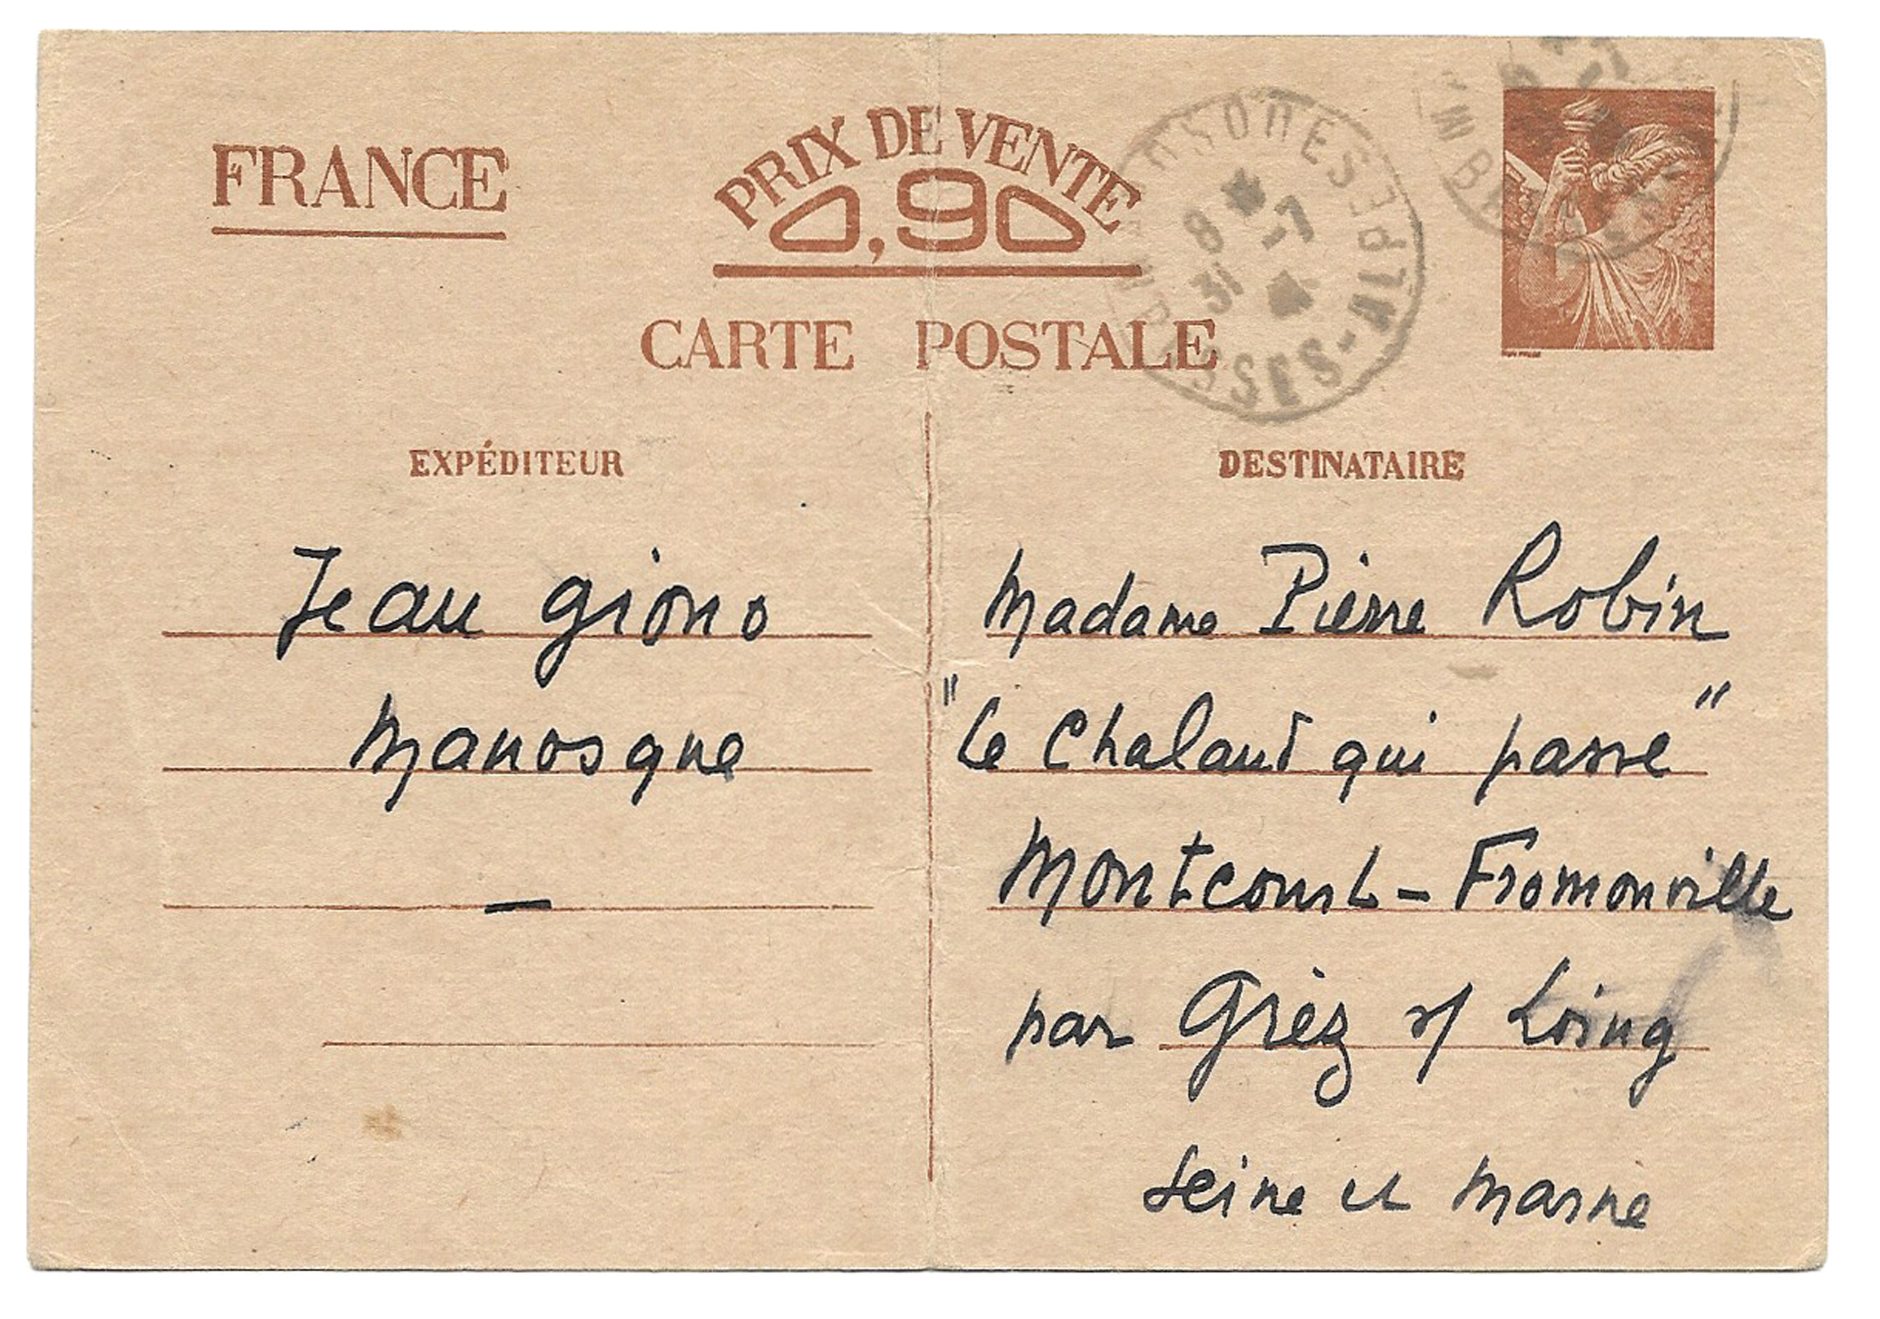 FRANCE
PRIX DE VENTE
0,90
CARTE POSTALE
EXPÉDITEUR
Jean Giono
Manosque
DESTINATAIRE
Madame Pierre Robin
"Le Chaland qui passe"
Montcourt - Fromonville
par Grèz s/ Loing
Seine et Marne
8
-7
31
BASSES-ALPES